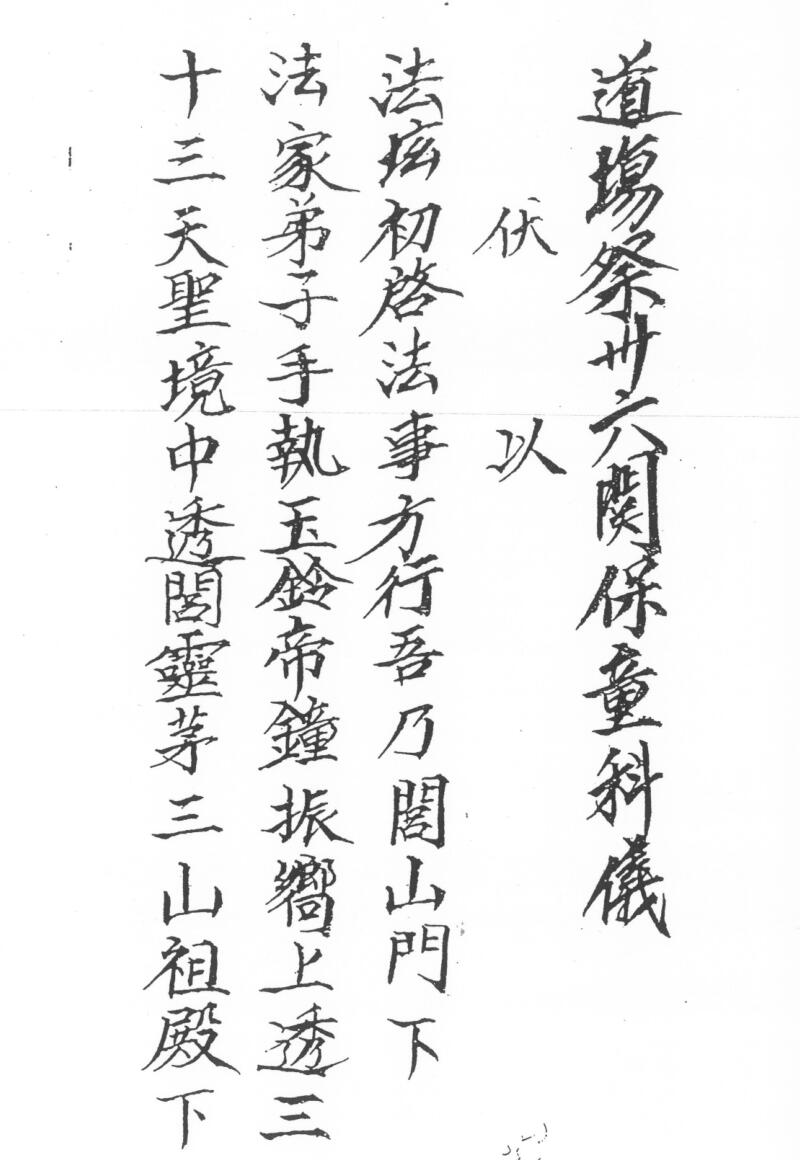 道場祭卅六関保童科儀
伏以
法坛初啓法事方行吾乃閭山門下
法家弟子手執玉鈴帝鐘振嚮上透三
十三天聖境中透閭靈茅三山祖殿下